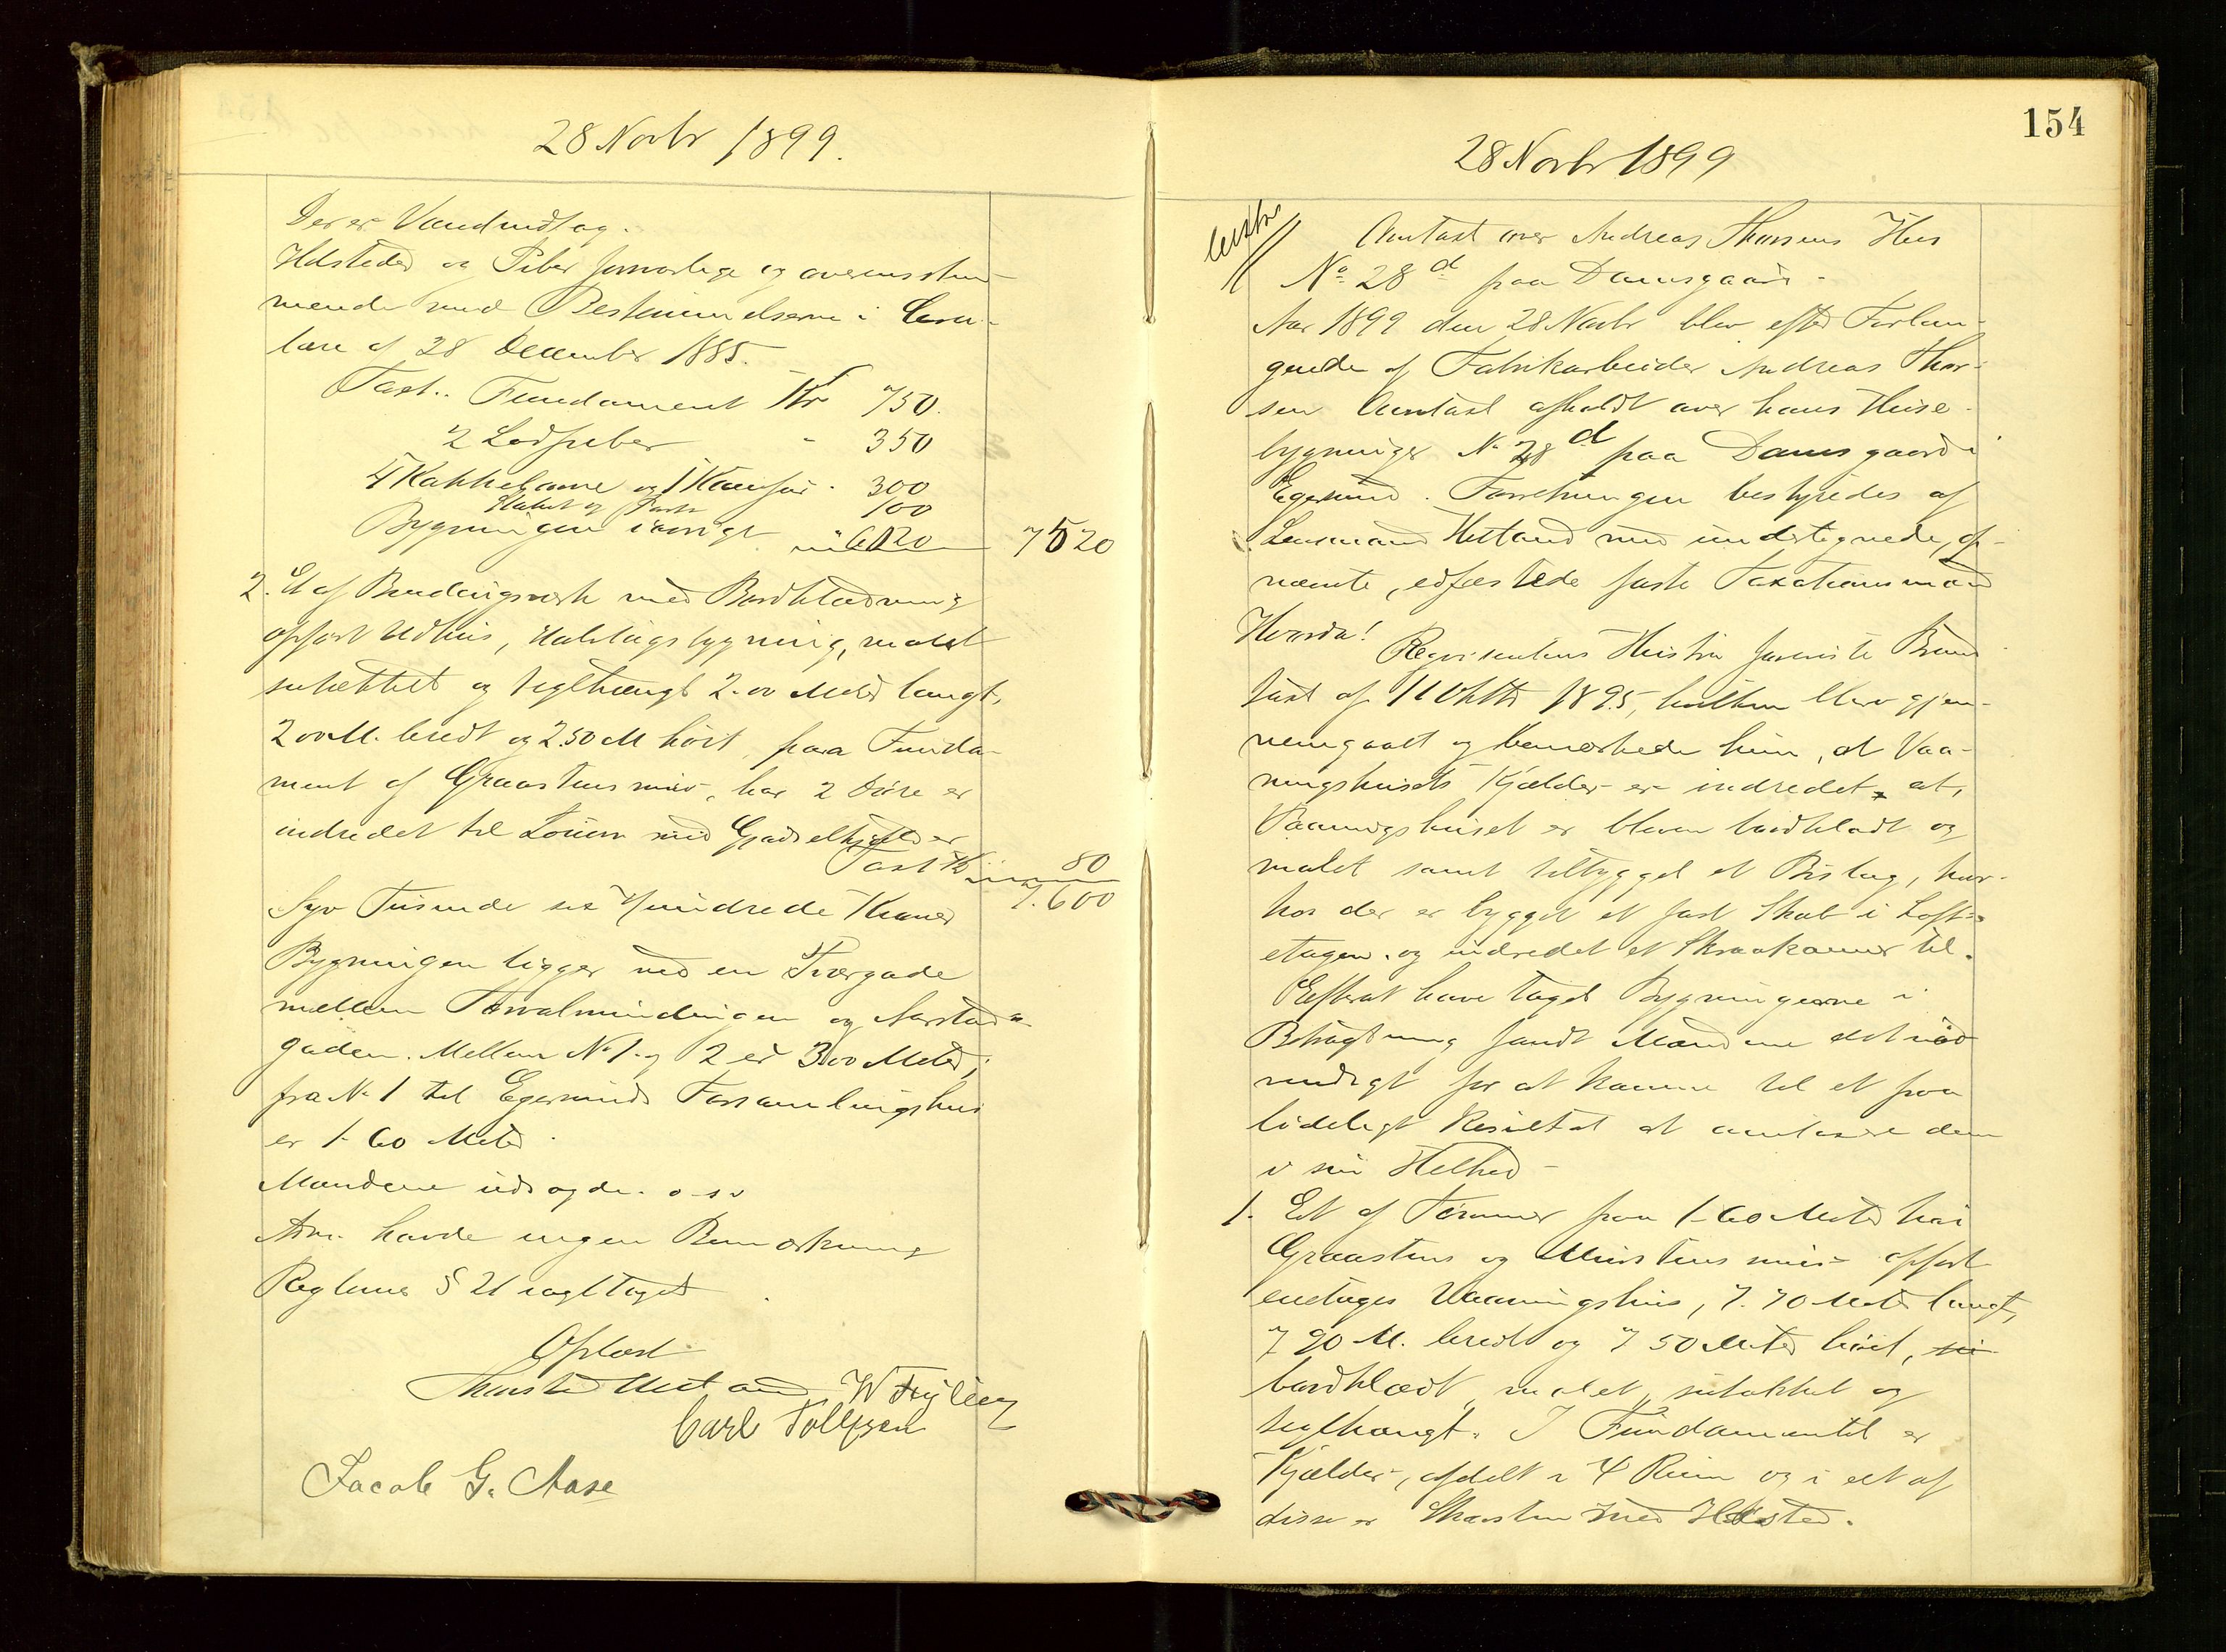 28 Novbr 1899.
Der er Vandudtag.
Ildsteder og Piber forsvarlige og overensstem-
mende med Bestemmelserne i Cirku-
lære af 28 December 1885.
Taxt.. Fundament Kr 750.
2 Lodpiber " 350
4 Kakkelovne og 1 Komfur " 300
Stakit og Port 100
Bygningen iøvrigt 6020 7520
2. Et af Bindingsverk med Bordklædning
opført Udhus, Halvtagsbygning, malet
sutækket og teglhængt 2.00 Meter langt,
2 00 M. bredt og 2.50 M høit, paa Funda-
ment af Graastensmur, har 2 Døre er
indredet til Louver med Gjødselkjælder
Taxt Kr 80
7.600
Syv Tusende sex Hundrede Kroner
Bygningen ligger ved en Tværgade
mellem Torvalmindingen og Aarstad-
gaden. Mellem No 1. og 2 er 3.00 Meter;
fra No 1 til Egersunds Forsamlingshus
er 1.60 Meter.
Mændene udsagde. o. s. v
havde ingen Bemærkning
Reglernes § 21 iagttaget
Oplæst
Hetland W Fugleby
Carl Tollefsen
Jacob G. Aase
154
28 Novbr 1899
Omtaxt over Andreas Thorsens Hus
No 28 d paa Damsgaard.
Aar 1899 den 28 Novbr blev efter Forlan-
gende af Fabrikarbeider Andreas Thor-
sen Omtaxt afholdt over hans Huse-
bygninger No 28 d paa Damsgaard i
Egersund. Forretningen bestyredes af
Lensmand Hetland med undertegnede, op-
nævnte, edfæstede faste Taxationsmænd
Hvorda!
Rekvirentens Hustru foreviste Brand-
taxt af 11 Oktbr 1895, hvilken blev gjen-
nemgaaet og bemærkede hun, at Vaa-
ningshusets Kjælder er indredet, at,
Vaaningshuset er bleven bordklædt og
malet samt tilbygget et Bislag, hvor-
hos der er bygget et fast Skab i Loft-
etagen. og indredet et Skraakammer til.
Efterat have taget Bygningerne i
Betragtning fandt Mændene det nød-
vendigt for at komme til et paa-
lideligt Resultat at omtaxere dem
i sin Helhed -
1. Et af Tømmer paa 1.60 Meter høi
Graastens og Murstens mur opført
enetages Vaaningshus, 7.70 Meter langt,
7 90 M. bredt og 7 50 Meter høit,
bordklædt, malet, sutækket og
teglhængt. I Fundamentet er
Kjælder, afdelt i 4 Rum og i et af
disse er Skorsten med Ildsted.